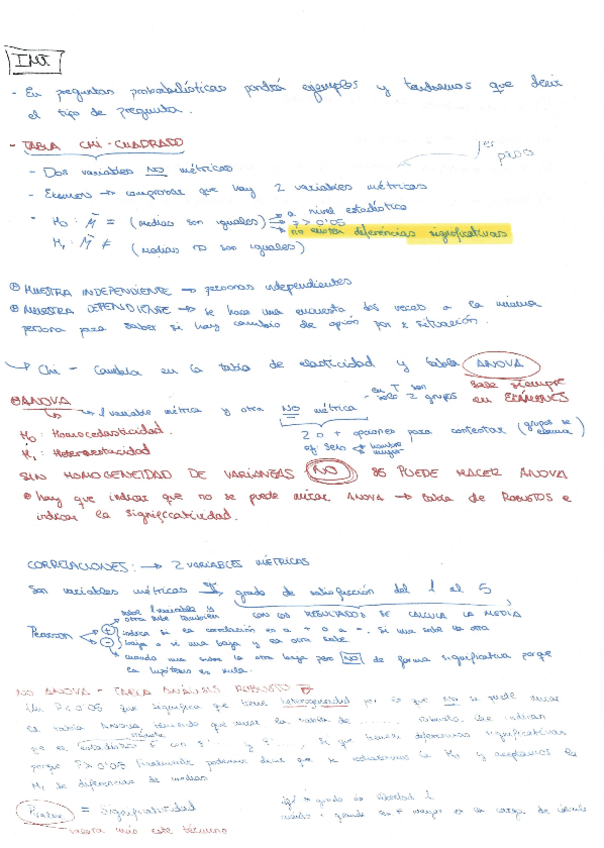 INV.
- En preguntas probabilísticas pondrá ejemplos y tendremos que decir
el tipo de pregunta.
- TABLA CHI-CUADRADO
1er paso
- Dos variables NO métricas
- Examen → comprobar que hay 2 variables métricas
- H0: M = (medias son iguales) → a nivel estadístico
→ > 0'05
→ no existen diferencias significativas
H1: M ≠ (medias no son iguales)
MUESTRA INDEPENDIENTE → personas independientes
MUESTRA DEPENDIENTE → se hace una encuesta dos veces a la misma
persona para saber si hay cambio de opión por x situación.
→ Chi - cambia en la tabla de elasticidad y tabla ANOVA
sale siempre
en EXÁMENES
ANOVA
→ 1 variable métrica y otra NO métrica - en T son
solo 2 grupos
H0: Homocedasticidad
2 o + opciones para contestar (grupos se
H1: Heterocedacidad
ej: Sexo hombre
mujer
SIN HOMOGENEIDAD DE VARIANZAS NO SE PUEDE HACER ANOVA
hay que indicar que no se puede mirar ANOVA → tabla de ROBUSTOS e
indicar la significatividad.
CORRELACIONES: → 2 VARIABLES MÉTRICAS
Son variables métricas grado de satisfacción del 1 al 5
CON LOS RESULTADOS SE CALCULA LA MEDIA
sube 1 variable la
otra sube también
Pearson + indica si la correlación es a + o a -. Si una sube la otra
- baja o si una baja y la otra sube
cuando una sube la otra baja pero NO de forma significativa porque
la hipótesis es nula.
NO ANOVA - TABLA ANÁLISIS ROBUSTO
P < 0'05 que significa que tiene heterogeneidad por lo que NO se puede mirar
la tabla ANOVA, teniendo que mirar la tabla de ........ robusto. Que indican
que el estadístico F con ... y ..., si que tienen diferencias significativas
porque P > 0'05 Finalmente podemos decir que se rechazamos la H0 y aceptamos la
H1 de diferencias de medias
P valor = significatividad
valora más este término
igl = grado de libertad 1